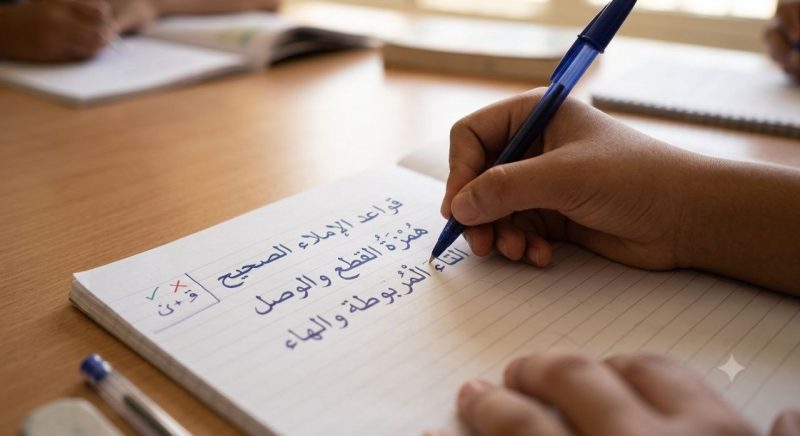 قواعد الإملاء الصحيح
هُمْزَةُ القطع والوصل
التاءَ المْرُبوطة والهاء
✓ ✗